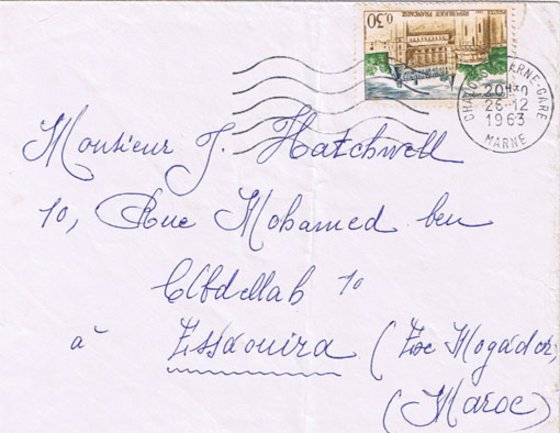 0.30
POSTES
REPUBLIQUE FRANÇAISE
CHALONS-S-MARNE-GARE
20H30
26-12
1963
MARNE
Monsieur J. Hatchwell
10, Rue Mohamed ben
Abdellah 10
à Essaouira (Exe Mogador,
(Maroc)